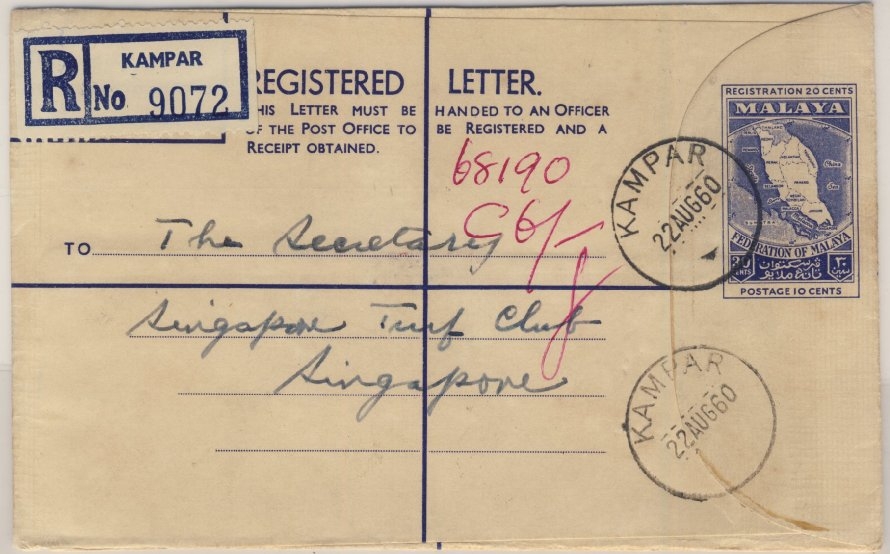 R KAMPAR
No 9072
REGISTERED LETTER.
THIS LETTER MUST BE HANDED TO AN OFFICER
OF THE POST OFFICE TO BE REGISTERED AND A
RECEIPT OBTAINED.
68190
TO The Secretary
Singapore Turf Club
Singapore
REGISTRATION 20 CENTS
MALAYA
FEDERATION OF MALAYA
30 CENTS
POSTAGE 10 CENTS
KAMPAR
22AUG60
KAMPAR
22AUG60